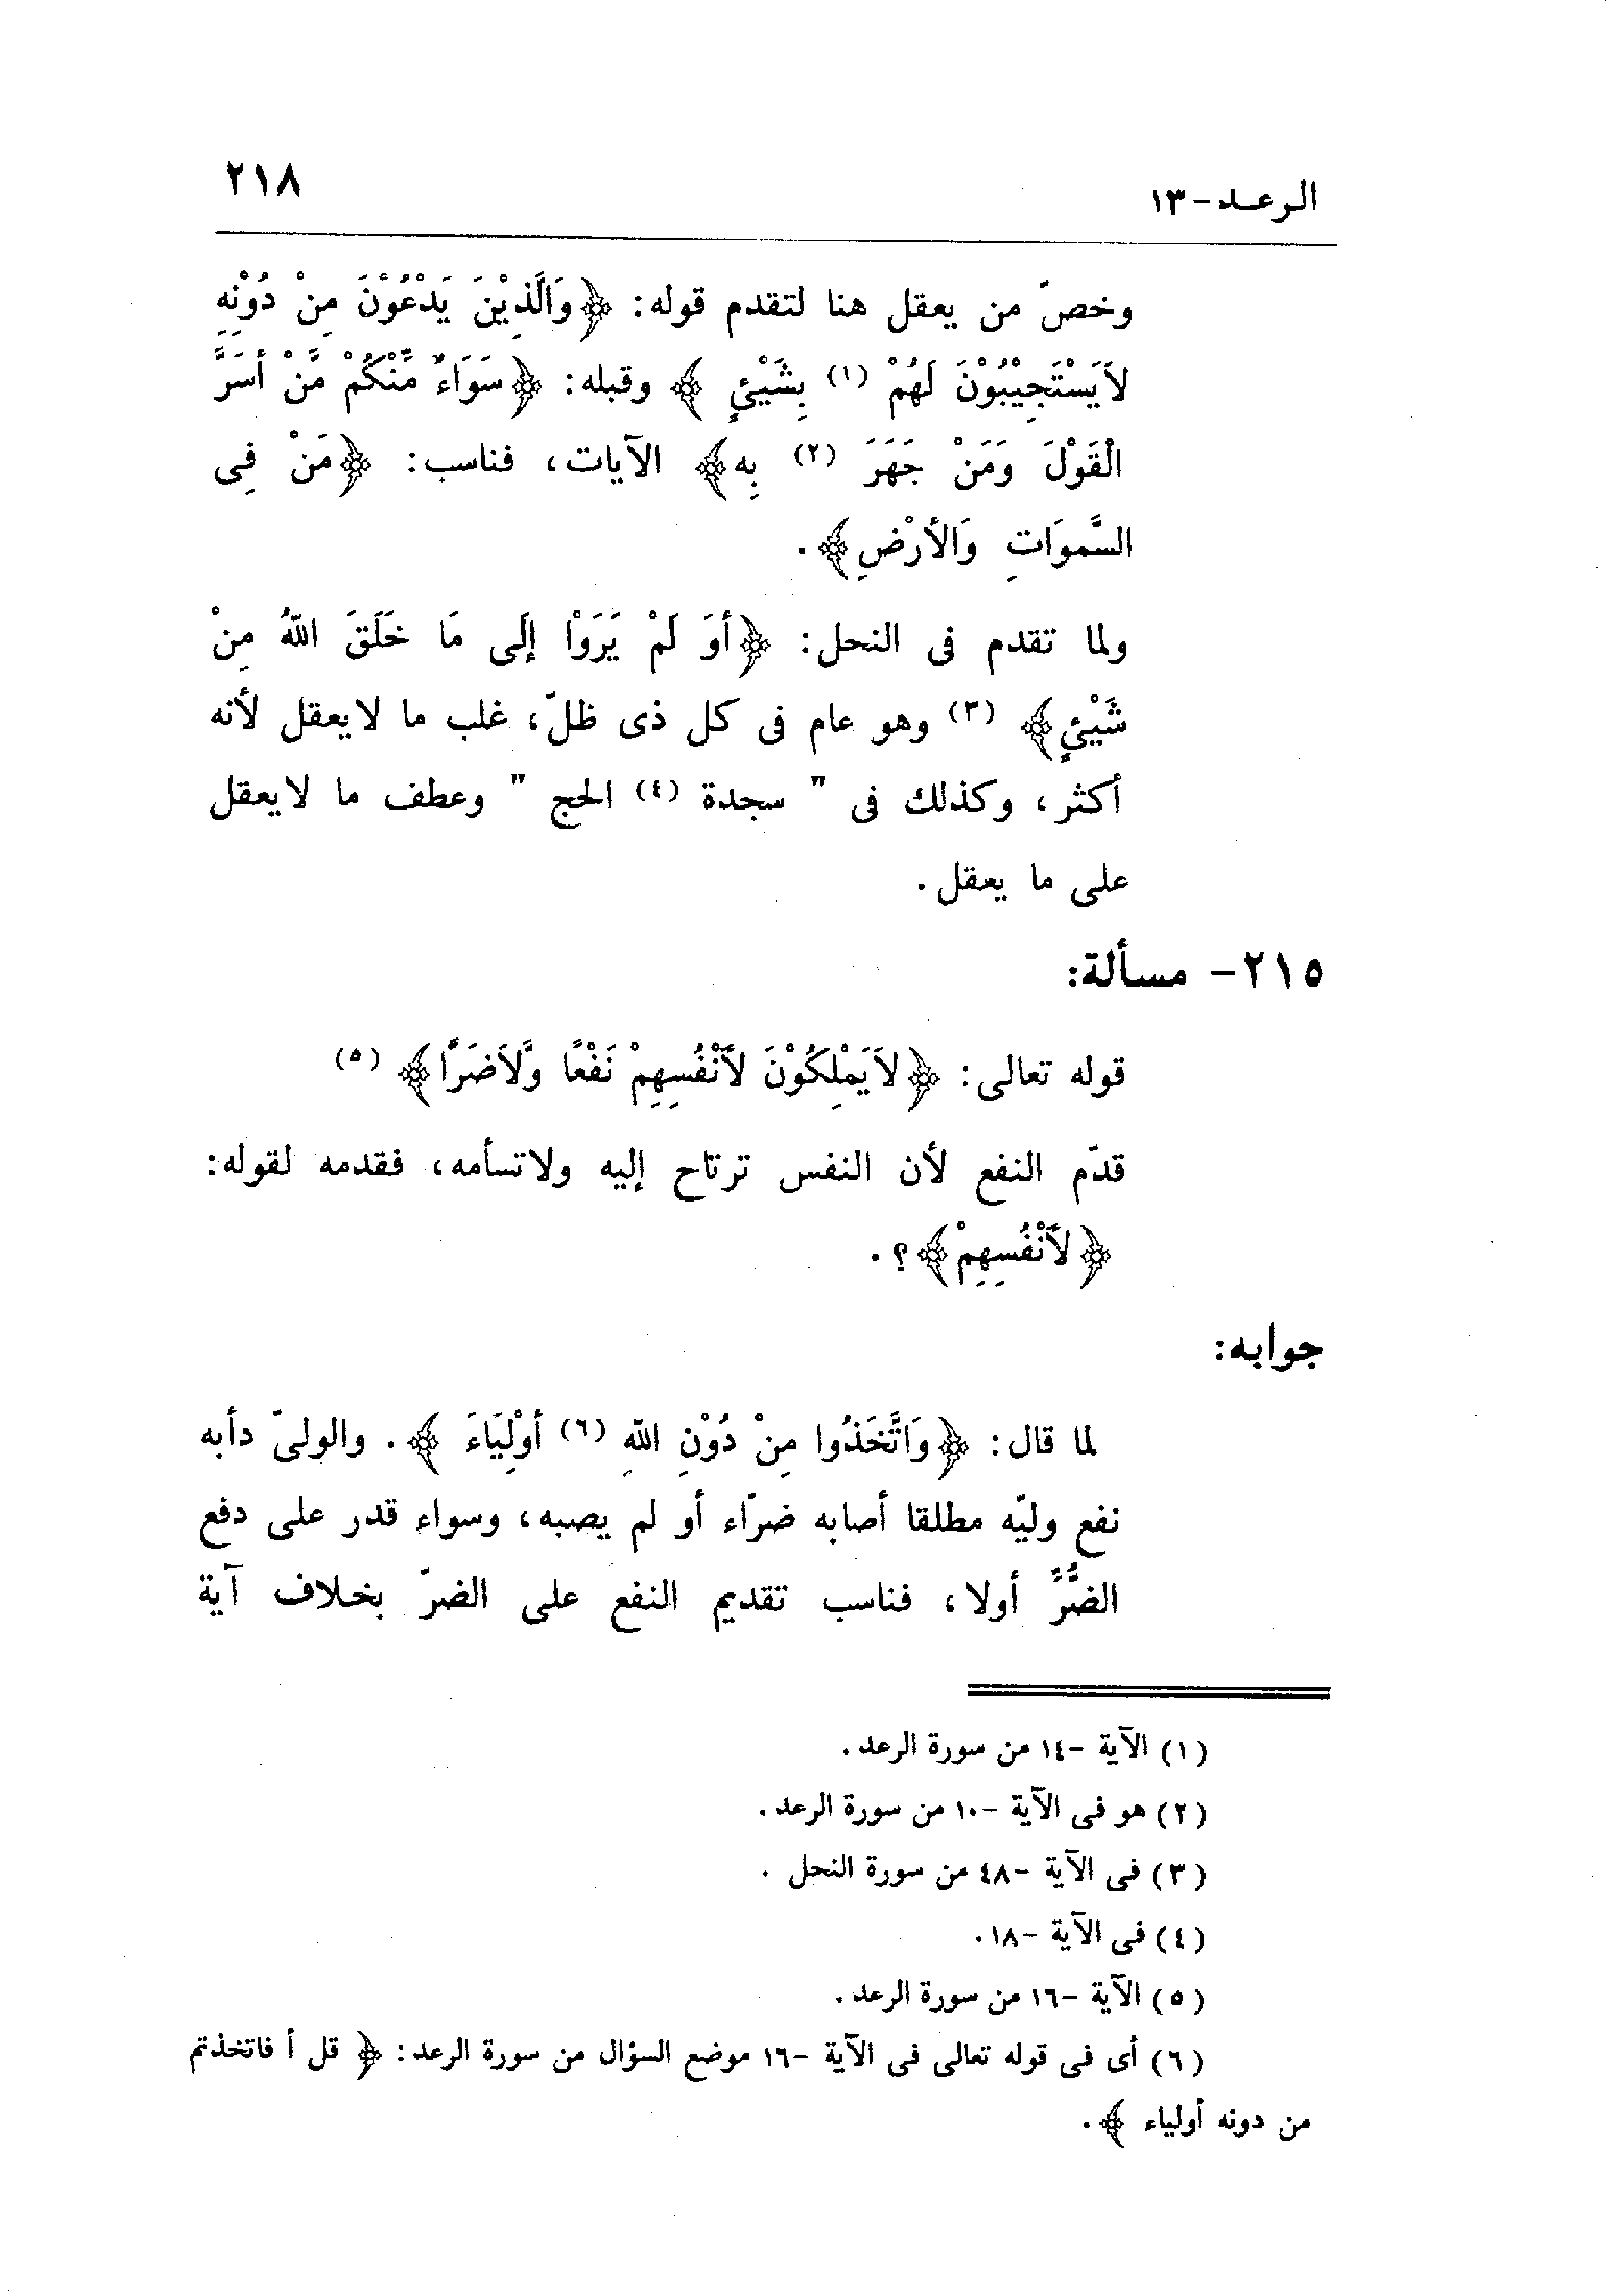 الرعـد-١٣
٢١٨
وخصّ من يعقل هنا لتقدم قوله: ﴿وَالَّذِيْنَ يَدْعُوْنَ مِنْ دُوْنِهِ
لاَيَسْتَجِيْبُوْنَ لَهُمْ (١) بِشَيْئٍ ﴾ وقبله: ﴿سَوَاءٌ مِّنْكُمْ مَّنْ أسَرَّ
الْقَوْلَ وَمَنْ جَهَرَ (٢) بِه﴾ الآيات، فناسب: ﴿مَنْ فِى
السَّموَاتِ وَالأرْضِ﴾.
ولما تقدم فى النحل: ﴿أوَ لَمْ يَرَوْا إلَى مَا خَلَقَ اللهُ مِنْ
شَيْئٍ﴾ (٣) وهو عام فى كل ذى ظلّ، غلب ما لايعقل لأنه
أكثر، وكذلك فى " سجدة (٤) الحج " وعطف ما لايعقل
على ما يعقل.
٢١٥- مسألة:
قوله تعالى: ﴿لاَيَمْلِكُوْنَ لأَنْفُسِهِمْ نَفْعًا وَّلاَضَرًّا﴾ (٥)
قدّم النفع لأن النفس ترتاح إليه ولاتسأمه، فقدمه لقوله:
﴿لأَنْفُسِهِمْ﴾؟.
جوابه:
لما قال: ﴿وَاتَّخَذُوا مِنْ دُوْنِ اللهِ (٦) أوْلِيَاءَ ﴾. والولىّ دأبه
نفع وليّه مطلقا أصابه ضرّاء أو لم يصبه، وسواء قدر على دفع
الضُّرِّ أولا، فناسب تقديم النفع على الضرّ بخلاف آية
(١) الآية -١٤ من سورة الرعد.
(٢) هو فى الآية -١٠ من سورة الرعد.
(٣) فى الآية -٤٨ من سورة النحل .
(٤) فى الآية -١٨.
(٥) الآية -١٦ من سورة الرعد.
(٦) أى فى قوله تعالى فى الآية -١٦ موضع السؤال من سورة الرعد: ﴿ قل أ فاتخذتم
من دونه أولياء ﴾.